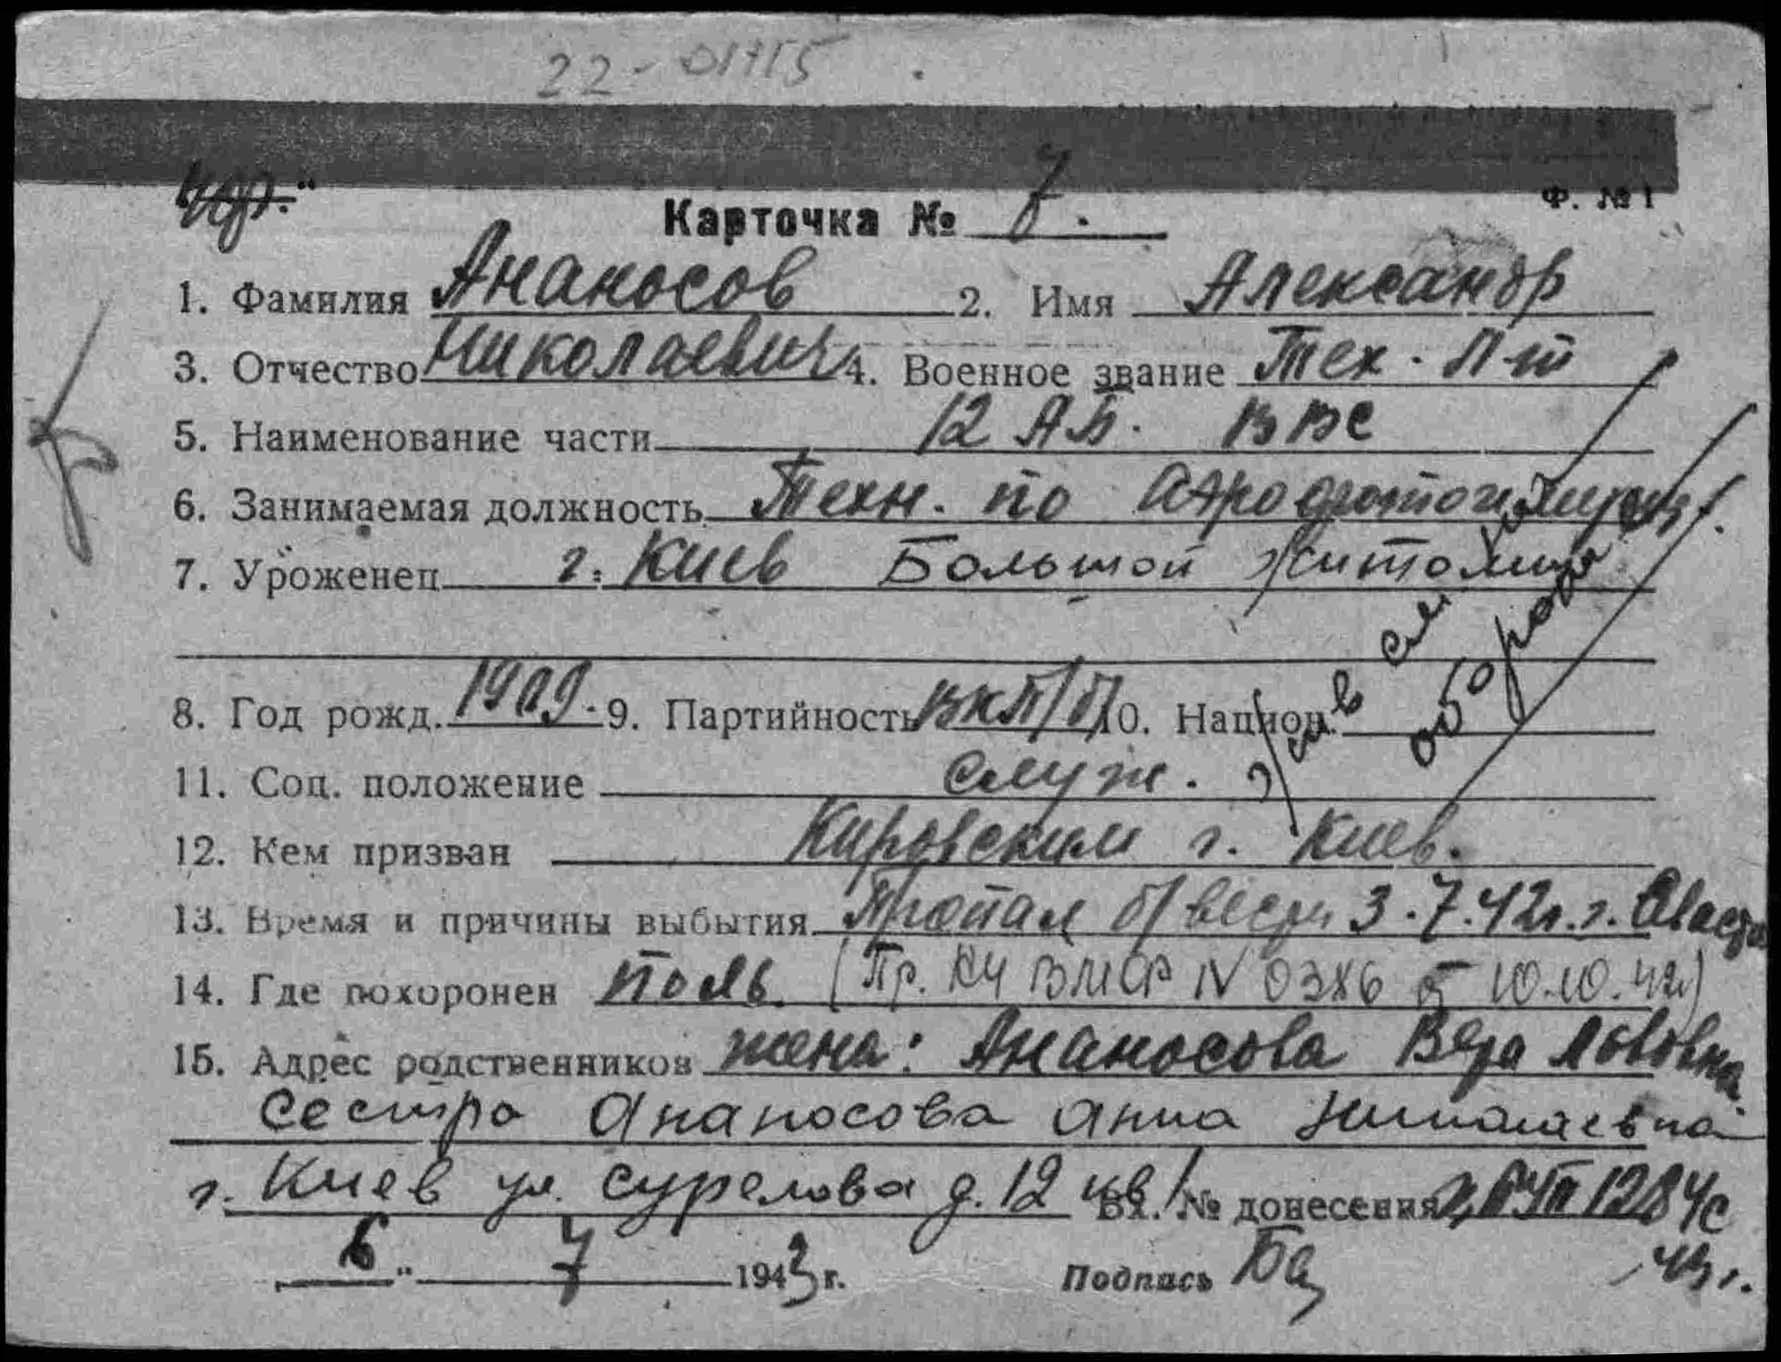 22-01715
Ф. № 1
Карточка № 7.
1. Фамилия Ананосов 2. Имя Александр
3. Отчество Николаевич 4. Военное звание Тех. Л-т
5. Наименование части 12 АБ. ВВС
6. Занимаемая должность Техн. по
7. Уроженец г. Киев Большой Житомир
8. Год рожд. 1909. 9. Партийность ВКП/б/ 10. Национ.
11. Соц. положение служ.
12. Кем призван Кировским г. Киев.
13. Время и причины выбытия Пропал б/вести 3.7.42г. г. Севасто
14. Где похоронен поль. (Пр. КЧ ВМФ № 0386 от 10.10.42г)
15. Адрес родственников жена: Ананосова Вера Львовна
Сестра Ананосова Анна Николаевна
г. Киев ул. д. 12 кв 1 Вх. № донесения 1284с
6 " 7 1943 г. Подпись 43г.